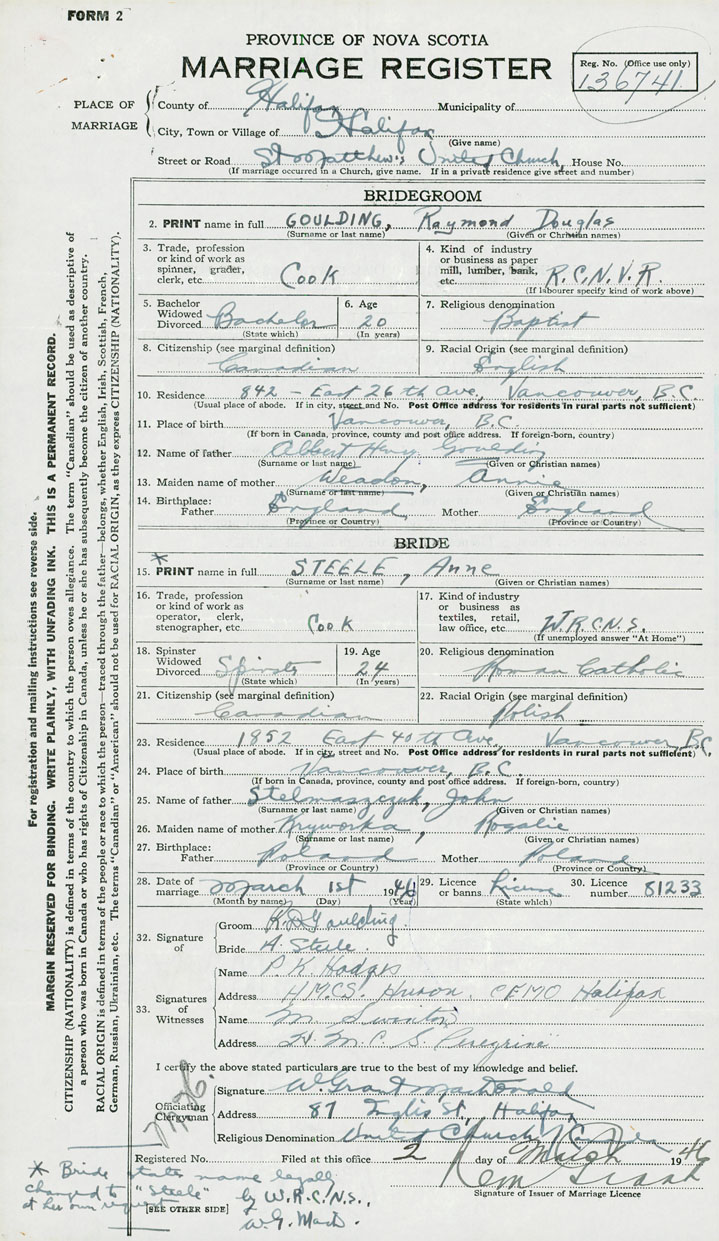 FORM 2
PROVINCE OF NOVA SCOTIA
MARRIAGE REGISTER
Reg. No. (Office use only)
136741
PLACE OF MARRIAGE
County of Halifax Municipality of
City, Town or Village of Halifax
(Give name)
Street or Road St. Matthew's United Church, House No.
(If marriage occurred in a Church, give name. If in a private residence give street and number)
BRIDEGROOM
2. PRINT name in full GOULDING, Raymond Douglas
(Surname or last name) (Given or Christian names)
3. Trade, profession or kind of work as spinner, grader, clerk, etc. Cook
4. Kind of industry or business as paper mill, lumber, bank, etc. R.C.N.V.R.
(If labourer specify kind of work above)
5. Bachelor Widowed Divorced Bachelor
(State which)
6. Age 20
(In years)
7. Religious denomination
Baptist
8. Citizenship (see marginal definition)
Canadian
9. Racial Origin (see marginal definition)
English
10. Residence 842 - East 26th Ave, Vancouver, B.C.
(Usual place of abode. If in city, street and No. Post Office address for residents in rural parts not sufficient)
11. Place of birth Vancouver, B.C.
(If born in Canada, province, county and post office address. If foreign-born, country)
12. Name of father Albert Henry Goulding
(Surname or last name) (Given or Christian names)
13. Maiden name of mother Weadon, Annie
(Surname or last name) (Given or Christian names)
14. Birthplace: Father England Mother England
(Province or Country) (Province or Country)
BRIDE
15. * PRINT name in full STEELE, Anne
(Surname or last name) (Given or Christian names)
16. Trade, profession or kind of work as operator, clerk, stenographer, etc. Cook
17. Kind of industry or business as textiles, retail, law office, etc. W.R.C.N.S.
(If unemployed answer "At Home")
18. Spinster Widowed Divorced Spinster
(State which)
19. Age 24
(In years)
20. Religious denomination
Roman Catholic
21. Citizenship (see marginal definition)
Canadian
22. Racial Origin (see marginal definition)
Polish
23. Residence 1852 East 40th Ave, Vancouver, B.C.
(Usual place of abode. If in city, street and No. Post Office address for residents in rural parts not sufficient)
24. Place of birth Vancouver, B.C.
(If born in Canada, province, county and post office address. If foreign-born, country)
25. Name of father Stelmaszczuk, John
(Surname or last name) (Given or Christian names)
26. Maiden name of mother Kryworka, Rogalie
(Surname or last name) (Given or Christian names)
27. Birthplace: Father Poland Mother Poland
(Province or Country) (Province or Country)
28. Date of marriage March 1st 1946
(Month by name) (Day) (Year)
29. Licence or banns License
(State which)
30. Licence number 81233
32. Signature of
Groom R.D. Goulding.
Bride A. Steele.
33. Signatures of Witnesses
Name P. K. Hodges
Address H.M.C.S. Huron. Halifax
Name M.
Address H. M. C. S. Peregrine
I certify the above stated particulars are true to the best of my knowledge and belief.
Officiating Clergyman
Signature W. Grant MacDonald
Address 87 Inglis St., Halifax
Religious Denomination United Church / Canada
Registered No. Filed at this office 2 day of March 1946
Signature of Issuer of Marriage Licence
[SEE OTHER SIDE)
* Bride states name legally
changed to "Steele" by W.R.C.N.S.,
at her own request
For registration and mailing instructions see reverse side.
MARGIN RESERVED FOR BINDING. WRITE PLAINLY, WITH UNFADING INK. THIS IS A PERMANENT RECORD.
CITIZENSHIP (NATIONALITY) is defined in terms of the country to which the person owes allegiance. The term "Canadian" should be used as descriptive of
a person who was born in Canada or who has rights of Citizenship in Canada, unless he or she has subsequently become the citizen of another country.
RACIAL ORIGIN is defined in terms of the people or race to which the person—traced through the father—belongs, whether English, Irish, Scottish, French,
German, Russian, Ukrainian, etc. The terms "Canadian" or "American" should not be used for RACIAL ORIGIN, as they express CITIZENSHIP (NATIONALITY).